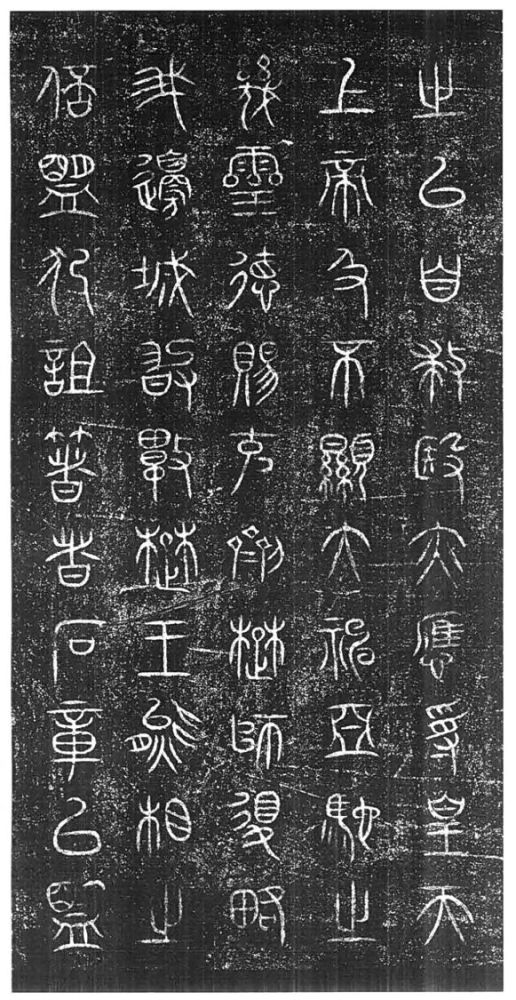 之以自救殹亦應受皇天
上帝及不顯大神亞駝之
幾靈德賜克劑楚師復略
我邊城敢數楚王熊相之
倍盟犯詛箸者石章以盟